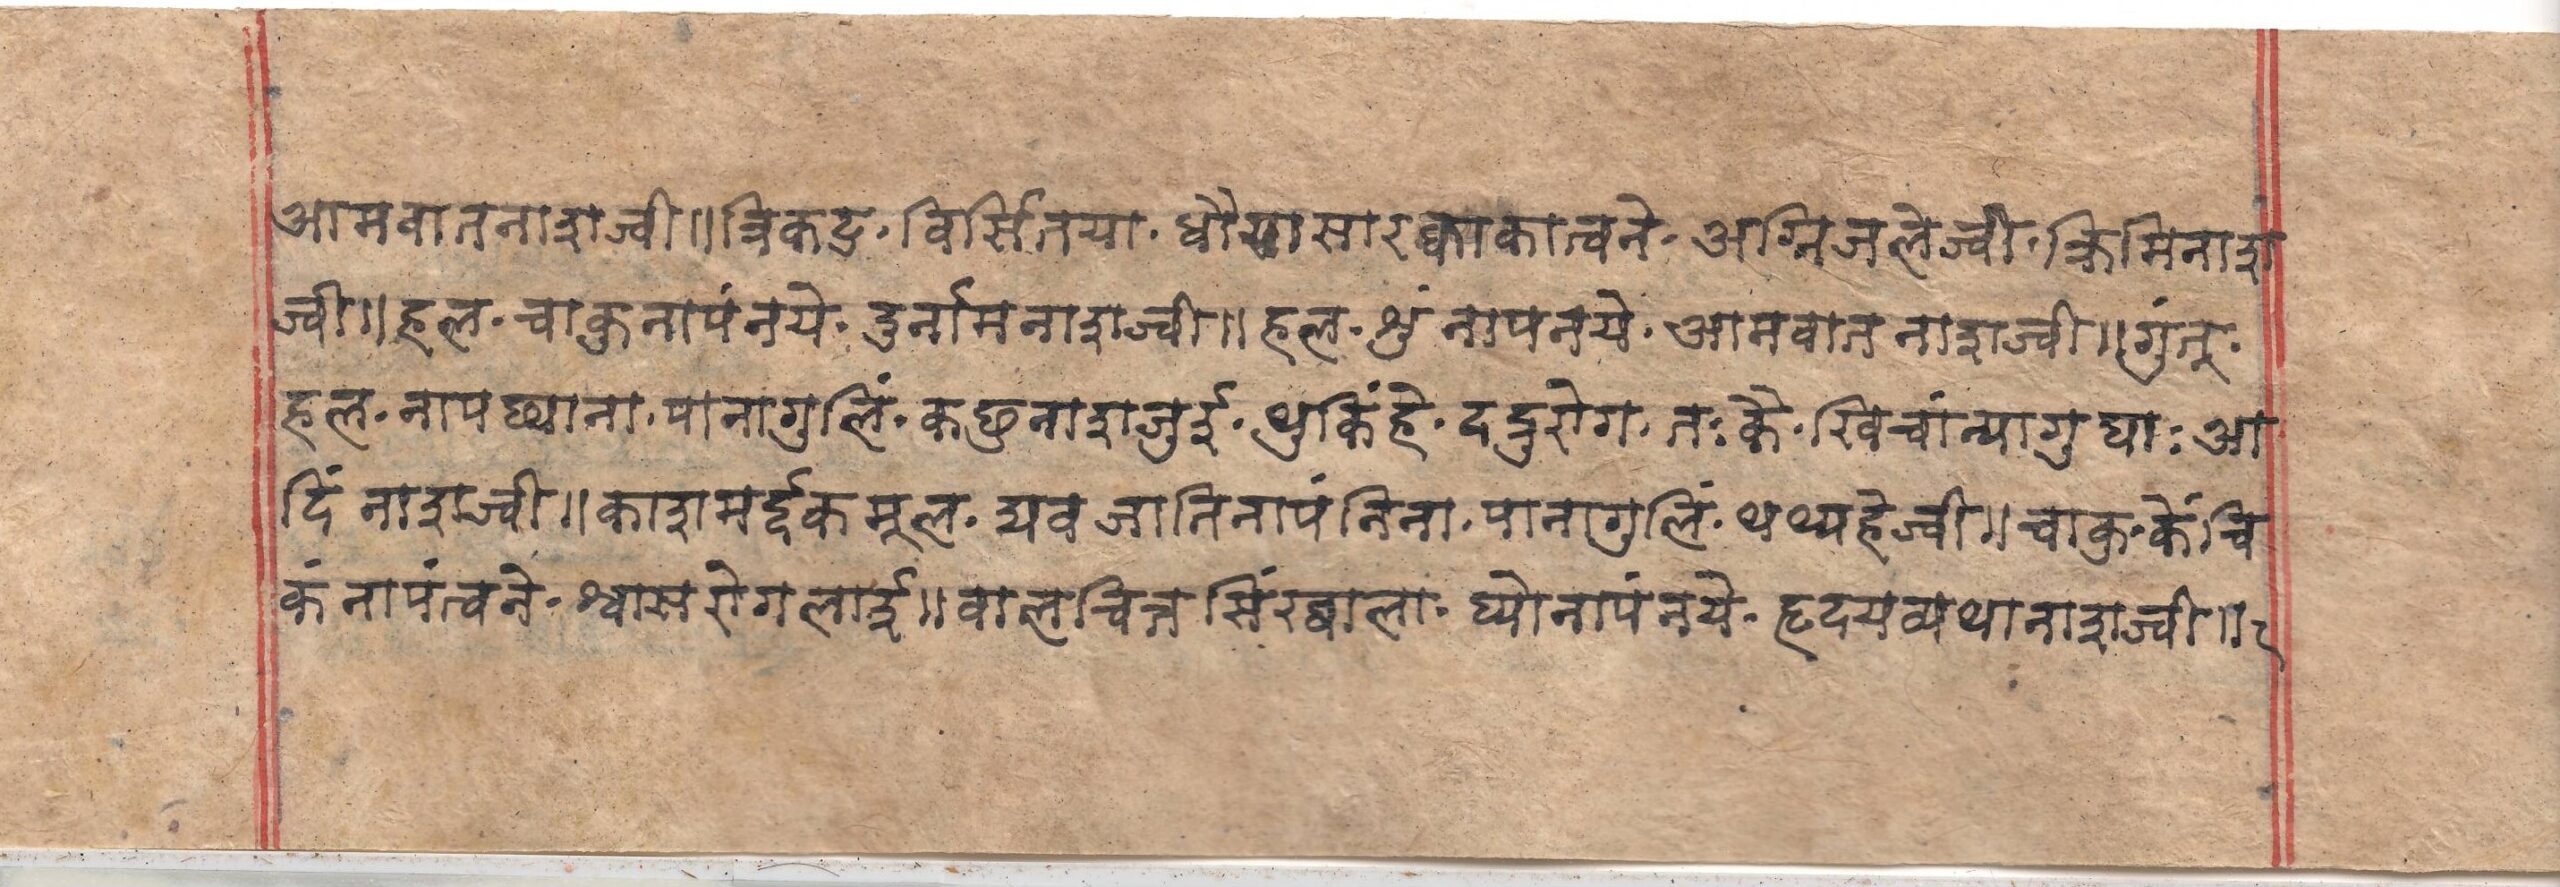 आमवातनाशज्वी॥त्रिकटु·विर्सितया·धौयासारक्वाकात्वने·अग्निजलेज्वी·क्रिमिनाश
ज्वी॥हल·चाकुनापंनये·दुर्नामनाशज्वी॥हल·शुं नापनये·आमवातनाशज्वी॥गुंत्·
हल·नापछ्याना·पानागुलिं·कछुनाशजुई·थुकिंहे·दद्रुरोग·तःकै·खिचांन्यागुघाःआ
दिं नाशज्वी॥काशमर्द्दकमूल·यवजानिनापंनिना·पानागुलिं·थथ्यहेज्वी॥चाकु·केंचि
कं नापंत्वने·श्वासरोगलाई॥वालचित्र सिंरद्वाला·घ्यौनापंनये·हृदयव्यथानाशज्वी॥